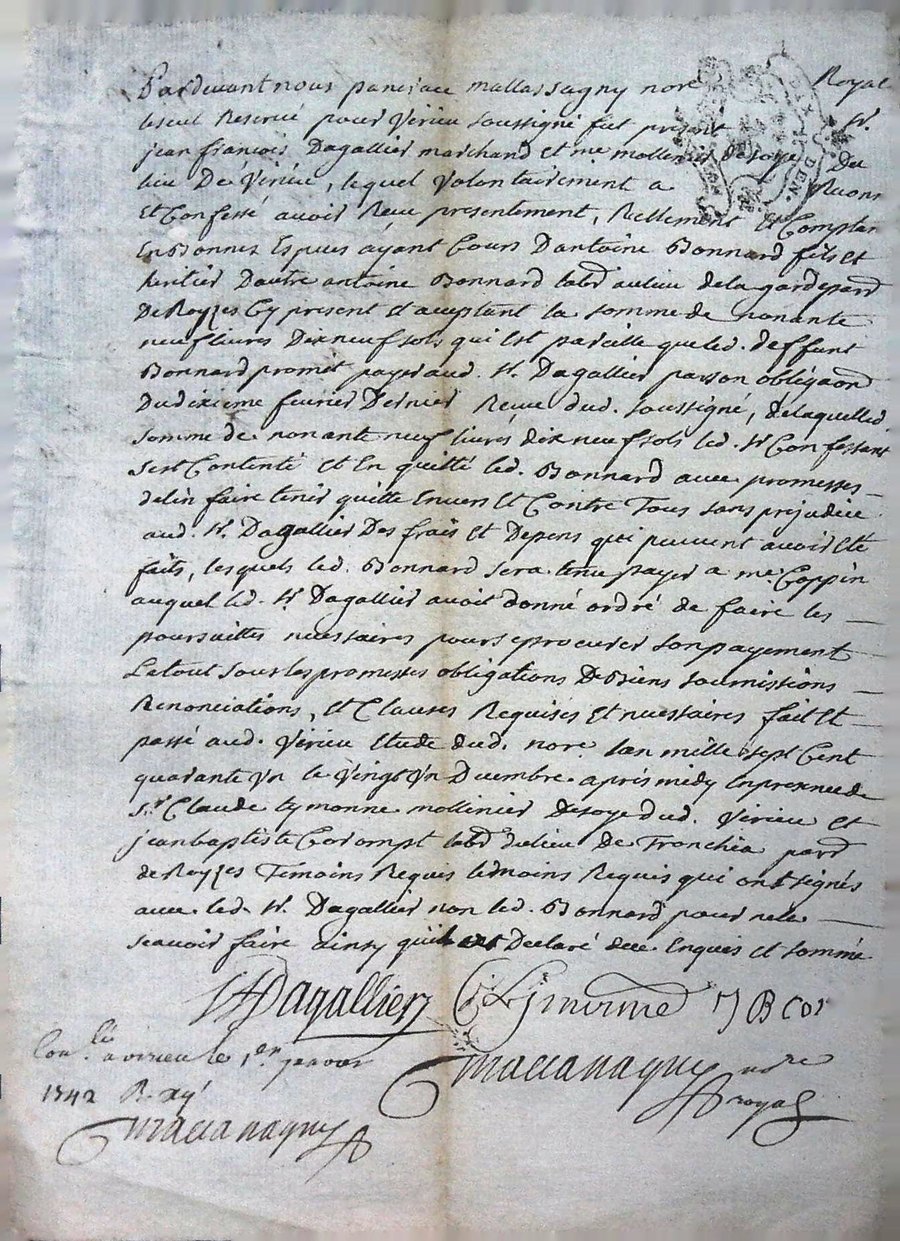 Pardevant nous pancrace mallassagny nore Royal
Reservé pour Virieu soussigné fut present sr.
jean françois Dagallier marchand et me mollinier de soye Du
lieu De Virieu, lequel Volontairement a Reconu
Et Confessé avoir Reçu presentement, Rellement et Comptan
En Bonnes Especes ayant Cours D'antoine Bonnard fils et
heritier D'autre antoine Bonnard labr au lieu de la garde pard
De Royzes Cy present et aceptant la somme de nonante
neuf livres Dix neuf sols qui Est pareille que led. deffunt
Bonnard promet payer aud. sr. Dagallier par son obligaon
Du dixieme fevrier Dernier Reçue dud. soussigné, de laquelle
somme de nonante neuf livres dix neuf sols led. sr Confessant
s'est Contenté et En quitte led. Bonnard avec promesses
de l'en faire tenir quitte Envers Et Contre Tous sans prejudice
aud. sr. Dagallier Des frais Et Depens qui peuvent avoir Eté
faits, lesquels led. Bonnard sera tenu payer a me Coppin
auquel led. sr Dagallier avoit donné ordre de faire les
poursuittes necessaires pour se procurer son payement
Le tout sous les promesses obligations De Biens soumissions
Renonciations, et Clauses Requises Et necessaires fait Et
passé aud. Virieu Etude dud. nore lan mille sept Cent
quarante Un le Vingt Un Decembre apres midy En presence de
sr. Claude Eymonne mollinier De soye dud. Virieu et
jean baptiste Corompt labr du lieu de Tronchia pard
de Royzes Temoins Requis Requis qui ont signés
avec led. sr. Dagallier non led. Bonnard pour ne le
sçavoir faire ainsy qu'il a Declaré de ce Enquis et sommé
Dagallier C Eymonne J B Cor
Conlé a virieu le 1er janvier
1742 R. mallassagny nore
mallassagny royal